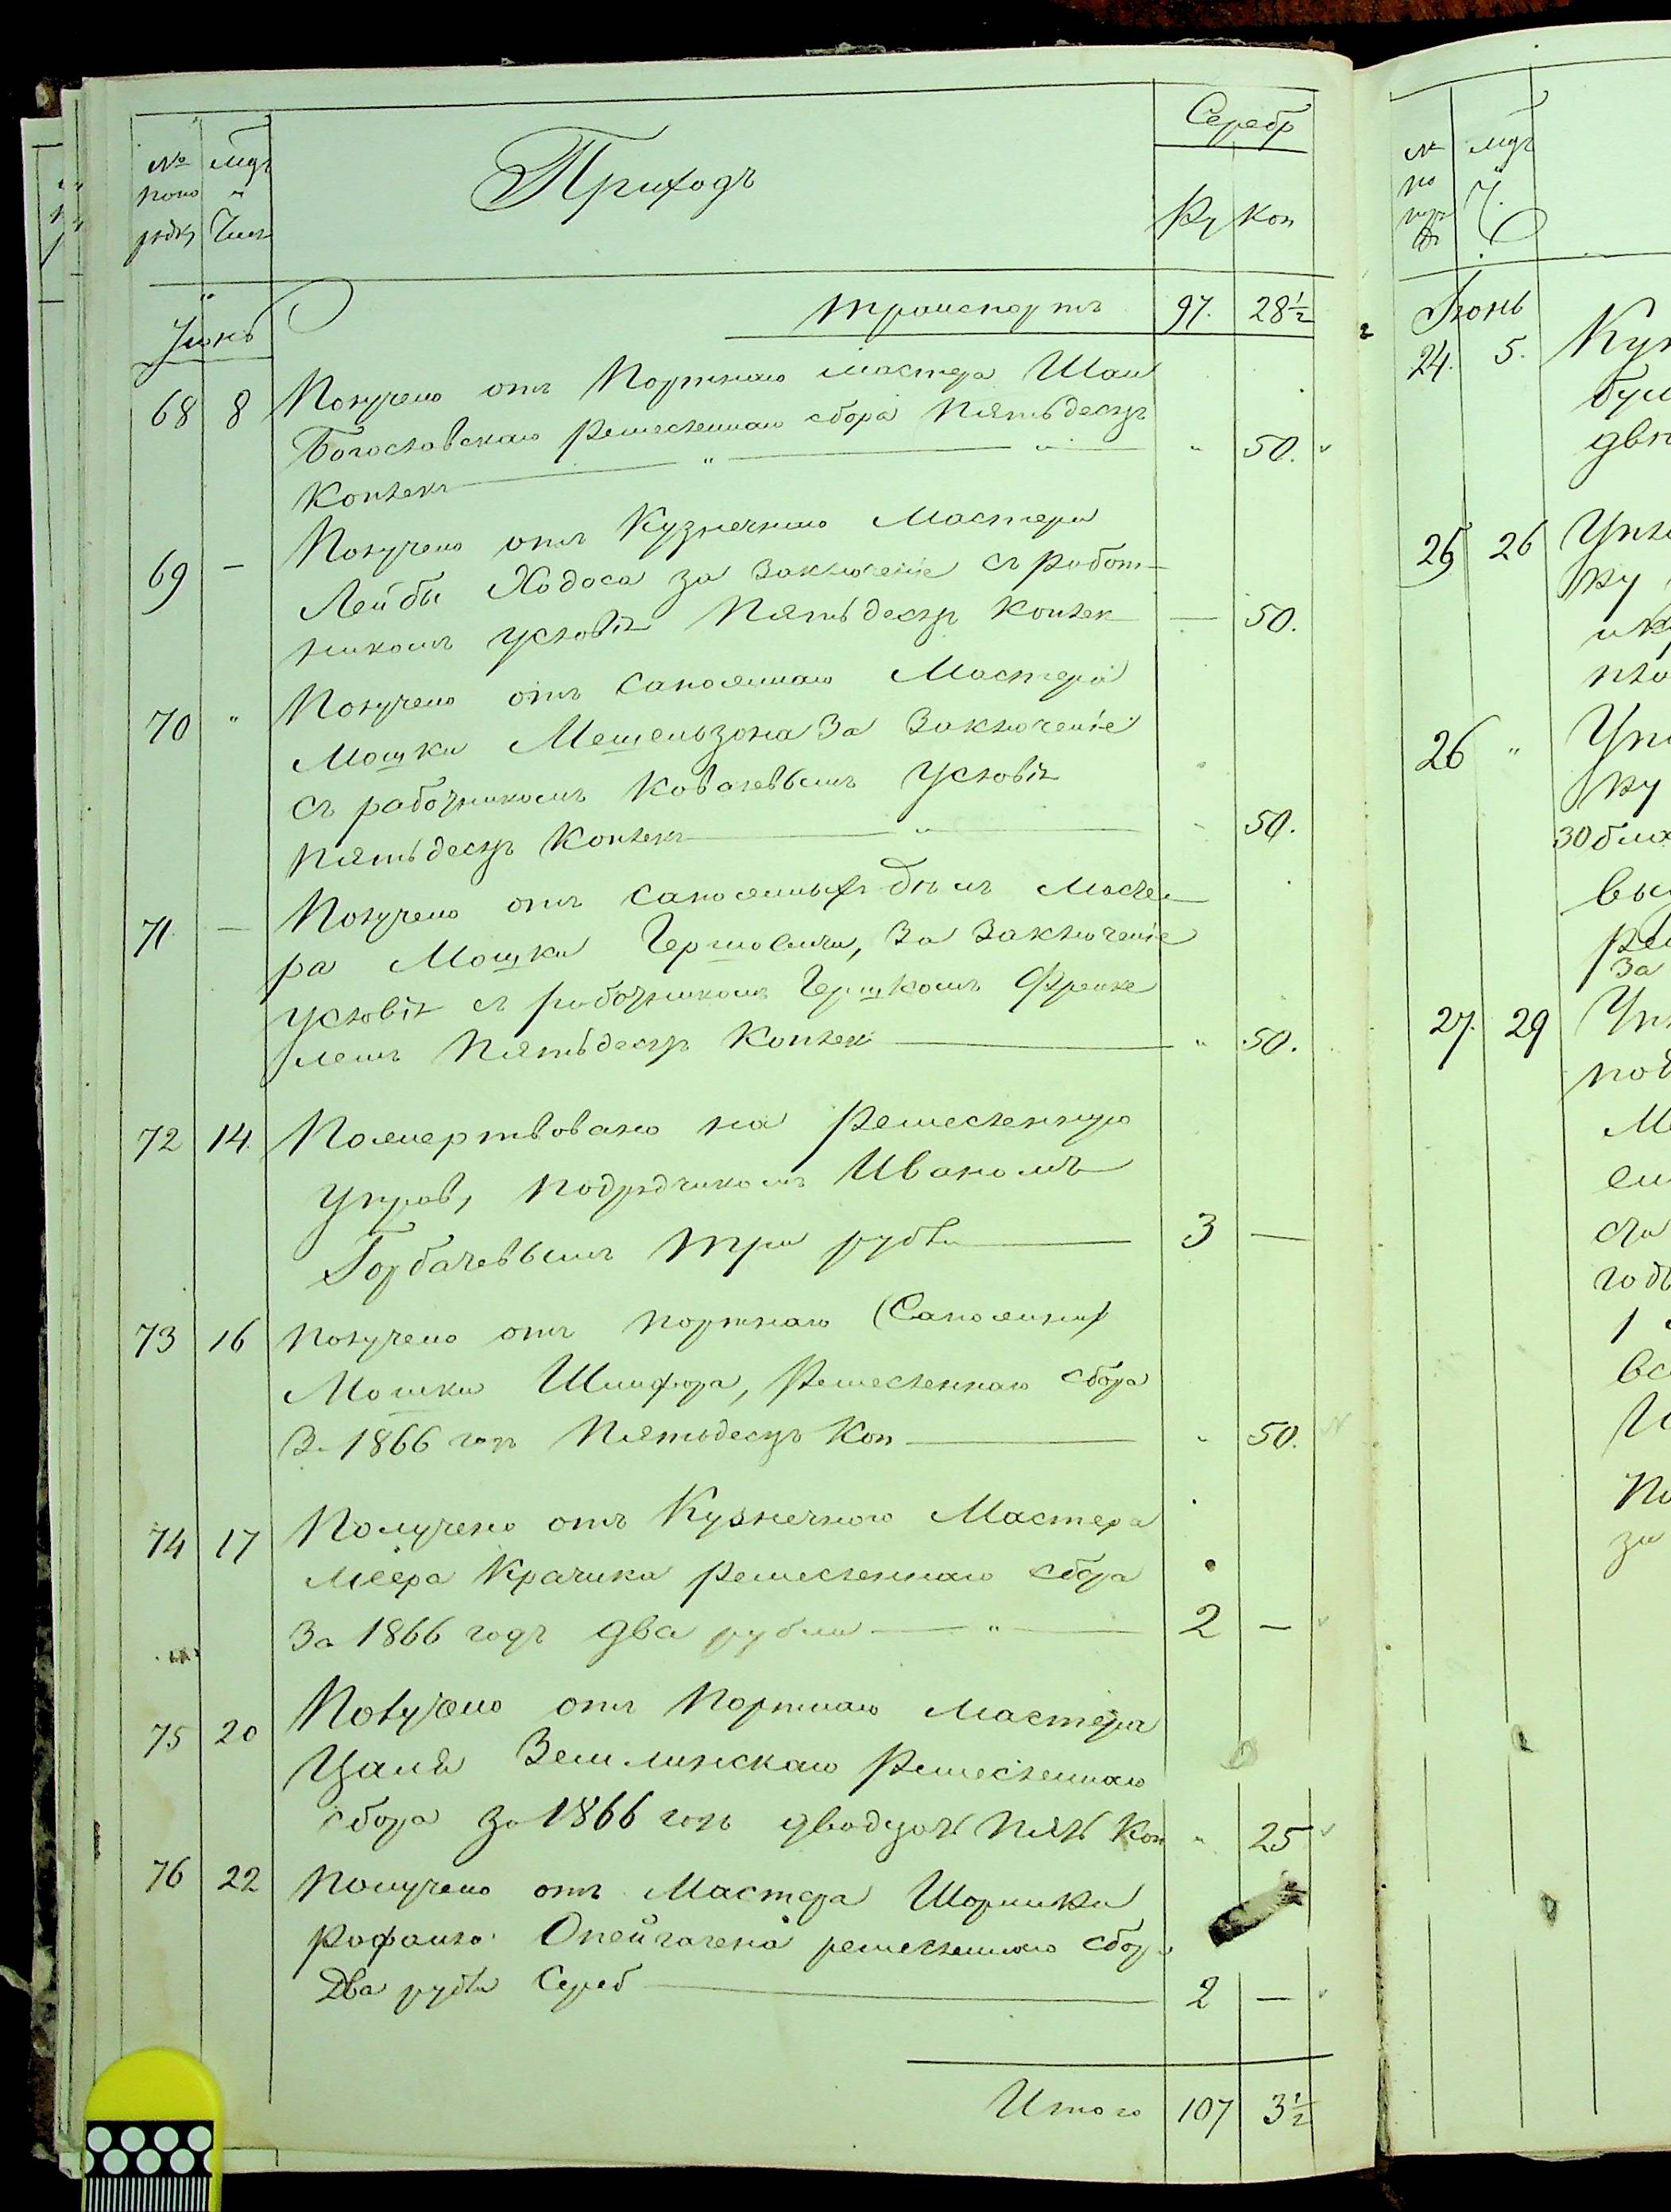 № поно рядку
Мцъ и Число
Приходъ
Серебр
Ру Коп
Iюнь
транспортъ 97. 28½
68 8 Получено отъ Портнаго мастера Шаи
Богославскаго ремесленнаго сбора Пятьдесят
Копѣекъ " 50.
69 — Получено отъ Кузнечнаго Мастера
Лейбы Ходоса за заключеніе съ работ-
никомъ условія Пятьдесят Копѣек — 50.
70 " Получено отъ сапожнаго Мастера
Мошки Мешельзона За Заключеніе
съ работникомъ Ковалевымъ Условія
пятьдесят Копѣекъ 50.
71 — Получено отъ сапожныхъ дѣлъ Масте-
ра Мошки Гершовича, За Заключеніе
условія съ работникомъ Гершкомъ Френке
лемъ Пятьдесят Копѣек " 50.
72 14. Пожертвовано на Ремесленную
Управ, подрядчикомъ Иваномъ
Горбачевымъ три рубли 3 —
73 16 Получено отъ портнаго (Сапожник)
Мошки Шифра, Ремесленнаго сбора
За 1866 годъ Пятьдесятъ Коп " 50.
74 17 Получено отъ Кузнечного Мастера
Меера Крачика ремесленнаго сбора
За 1866 годъ два рубли " 2 —
75 20 Получено отъ Портнаго Мастера
Цаля Землинскаго Ремесленнаго
сбора за 1866 годъ двадцать пять Коп " 25
76 22 Получено отъ Мастера Шорника
Рафаила ремесленнаго сбора
Два рубли Сереб 2 —
Итого 107 3½
№ по
мцъ Ч.
Iюнь
24. 5. Куп
бум
двѣ
25 26 Упла
ку
26 " Упл
ку
30
выд
рем
За
27. 29 Упл